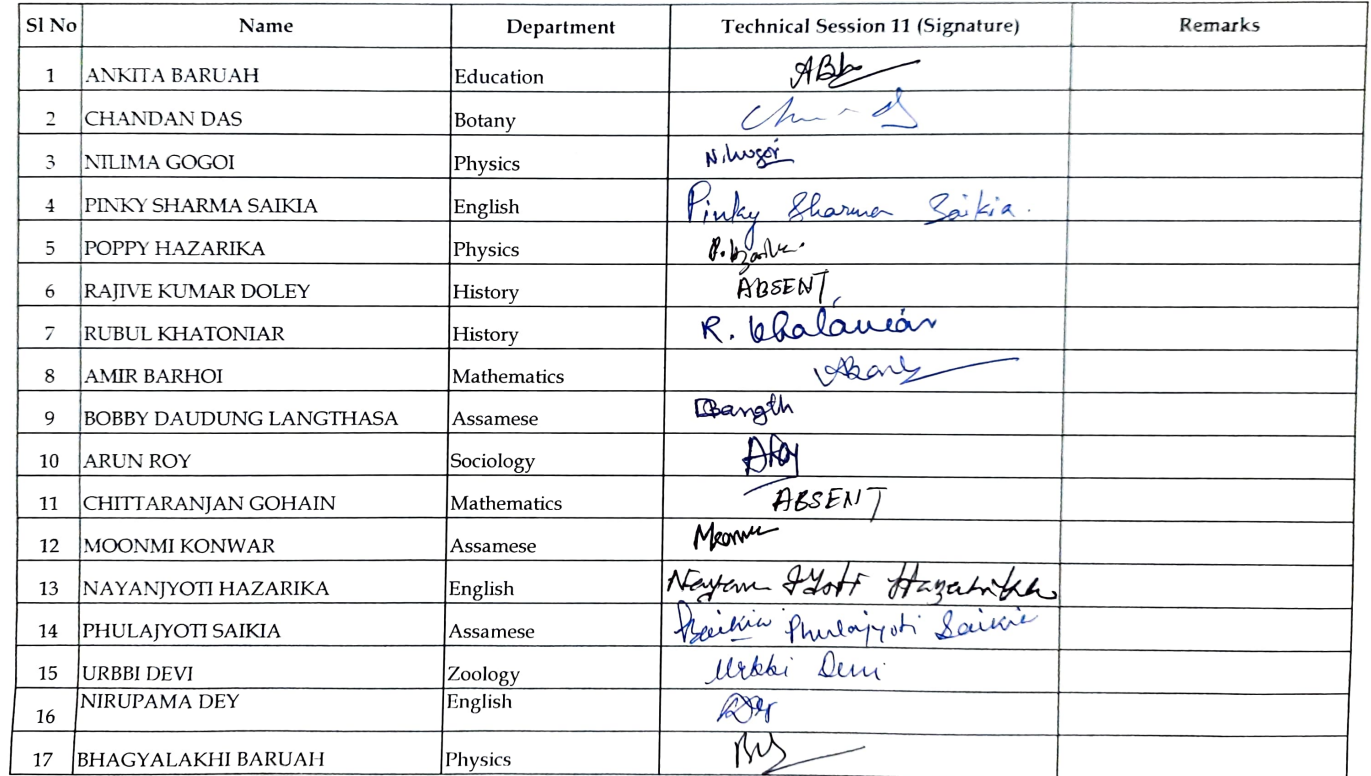 Sl No Name Department Technical Session 11 (Signature) Remarks
1 ANKITA BARUAH Education
2 CHANDAN DAS Botany
3 NILIMA GOGOI Physics N. Gogoi
4 PINKY SHARMA SAIKIA English Pinky Sharma Saikia.
5 POPPY HAZARIKA Physics
6 RAJIVE KUMAR DOLEY History ABSENT
7 RUBUL KHATONIAR History R. Khatoniar
8 AMIR BARHOI Mathematics
9 BOBBY DAUDUNG LANGTHASA Assamese
10 ARUN ROY Sociology ARoy
11 CHITTARANJAN GOHAIN Mathematics ABSENT
12 MOONMI KONWAR Assamese
13 NAYANJYOTI HAZARIKA English Nayan Jyoti Hazarika
14 PHULAJYOTI SAIKIA Assamese Saikia Phulajyoti Saikia
15 URBBI DEVI Zoology Urbbi Devi
16 NIRUPAMA DEY English
17 BHAGYALAKHI BARUAH Physics